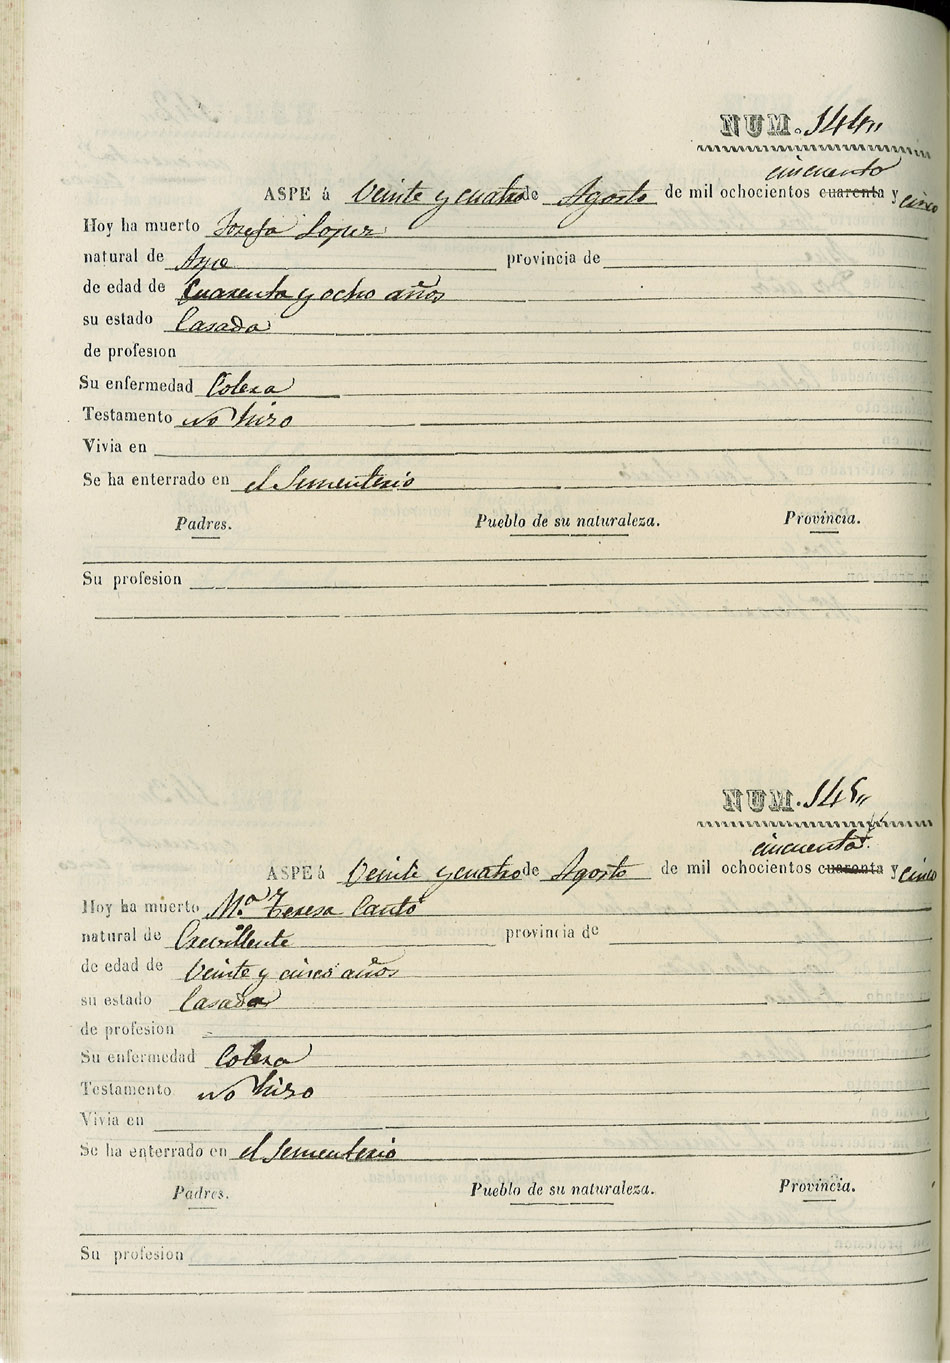 NUM. 144„
cincuenta
ASPE á Veinte y cuatro de Agosto de mil ochocientos cuarenta y cinco
Hoy ha muerto Josefa Lopez
natural de Aspe provincia de
de edad de Cuarenta y ocho años
su estado Casada
de profesion
Su enfermedad Colera
Testamento no hizo
Vivia en
Se ha enterrado en el Sementerio
Padres. Pueblo de su naturaleza. Provincia.
Su profesion
NUM. 145„
cincuenta
ASPE á Veinte y cuatro de Agosto de mil ochocientos cuarenta y cinco
Hoy ha muerto M.ª Teresa Cantó
natural de Crevillente provincia de
de edad de Veinte y cinco años
su estado Casada
de profesion
Su enfermedad Colera
Testamento no hizo
Vivia en
Se ha enterrado en el Sementerio
Padres. Pueblo de su naturaleza. Provincia.
Su profesion